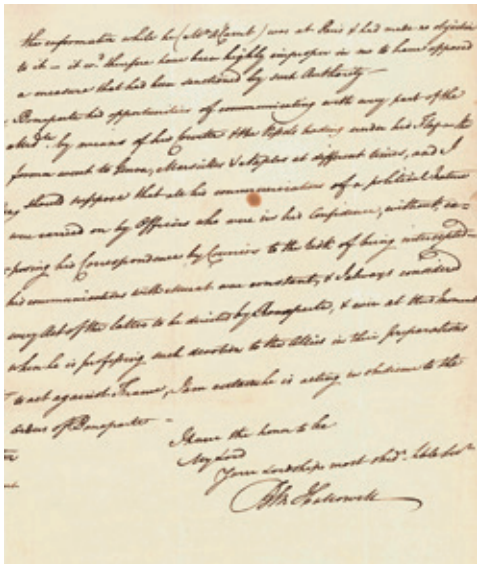 this information while he (Mr. A'Court) was at Paris & had made no objection
to it – it wd. therefore have been highly improper in me to have opposed
a measure that had been sanctioned by such Authority –
Bonaparte had opportunities of communicating with every part of the
by means of his Corvette & the Vessels trading under his Flag as the
former went to Genoa, Marseilles & Naples at different times, and I
should suppose that all his communications of a political Nature
were carried on by Officers who were in his Confidence, without ex=
=posing his Correspondence by Couriers to the Risk of being intercepted –
his communications with Murat were constant, & I always considered
every Act of the latter to be directed by Bonaparte, & even at this moment
when he is professing such devotion to the Allies in their preparations
to act against France, I am he is acting in obedience to the
orders of Bonaparte –
I have the honor to be
My Lord
Your Lordships most obedt. hble Servt.
Hallowell